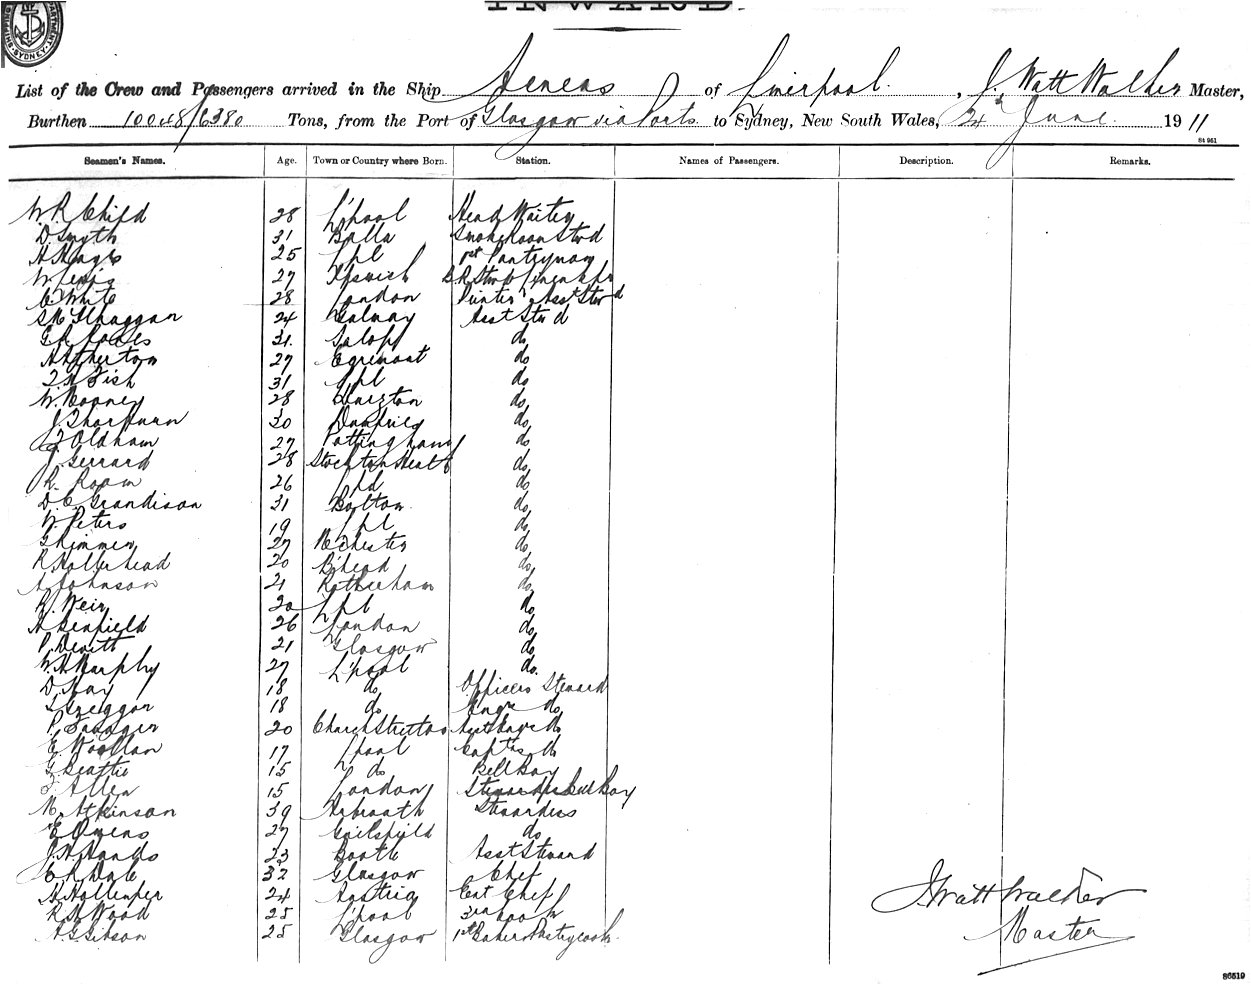 INWARD.
List of the Crew and Passengers arrived in the Ship Aeneas of Liverpool, J. Watt Walker Master,
Burthen 10048/6380 Tons, from the Port of Glasgow via Ports to Sydney, New South Wales, 24 June 1911
Seamen's Names. Age. Town or Country where Born. Station. Names of Passengers. Description. Remarks.
W. R. Child 28 L'pool Head Waiter
D. Smyth 31 Balla Smokeroom Stwd
25 Lpl 1st Pantryman
W. Lewis 27 Ipswich
C. White 28 London Printer & Asst Stwd
24 Galway Asst Stwd
31 Salop do
A. Atherton 27 Egremont do
T. H. Fish 31 Lpl do
W. Mooney 28 do
J. Thorburn 30 Dumfries do
T. Oldham 27 Nottingham do
J. Gerrard 28 Stockton Heath do
R. Room 26 Lpl do
D. C. Grandison 31 Bolton do
W. Peters 19 Lpl do
27 M'chester do
R. Hollerhead 20 B'head do
A. Johnson 21 Rotherham do
K. Weir 20 Lpl do
A. Benfield 26 London do
P. Devitt 21 Glasgow do
W. H. Murphy 27 L'pool do
D. Hay 18 do Officers Steward
Greggor 18 do Engrs do
20 Church Stretton Asst Engrs do
E. Woollan 17 L'pool Capt's do
G. Beattie 15 do Bell Boy
F. Allen 15 London Bell Boy
M. Atkinson 39 Arbroath Stewardess
E. Owens 27 Guilsfield do
J. H. Hands 23 Bootle Asst Steward
C. R. Dale 32 Glasgow Chef
H. Hollinger 24 Austria Ent Chef
R. H. Wood 25 L'pool 3rd Cook
A. G. Gibson 25 Glasgow 1st Baker & Pastrycook
J. Watt Walker
Master